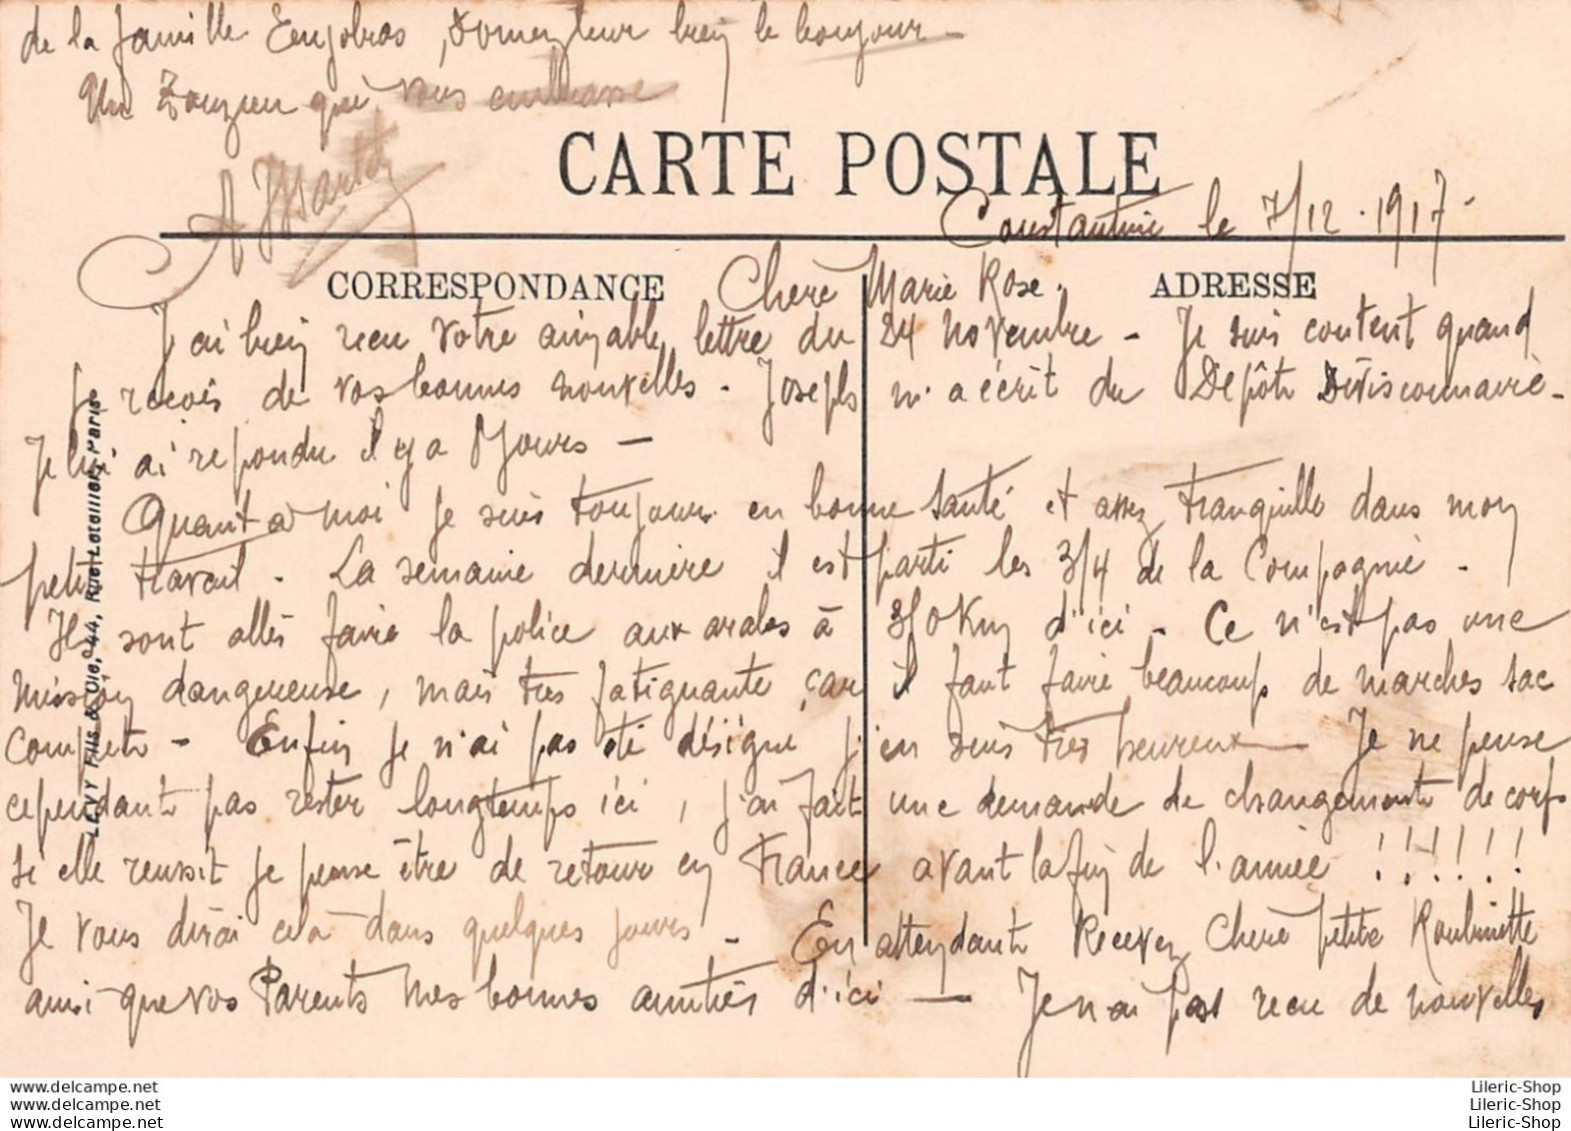 de la famille Eenjobras, Donnez leur bien le bonjour -
Un Zouzou qui vous embrasse
A
CARTE POSTALE
Constantine le 7/12 . 1917 -
CORRESPONDANCE
ADRESSE
Chere Marie Rose.
J'ai bien recu votre aimable lettre du 24 Novembre - Je suis content quand
je recois de vos bonnes nouvelles - Joseph m'a écrit du Dépôt Divisionnaire -
Je lui ai repondu il y a 8 Jours -
Quant a moi je suis toujours en bonne santé et assez tranquille dans mon
petit travail - La semaine derniere il est parti les 3/4 de la Compagnie -
Ils sont allés faire la police aux arabes à Km d'ici - Ce n'est pas une
mission dangereuse, mais tres fatiguante car il faut faire beaucoup de marches sac
complet - Enfin je n'ai pas été désigné j'en suis tres heureux - Je ne pense
cependant pas rester longtemps ici, j'ai fait une demande de changement de corps
si elle reussit je pense être de retour en France avant la fin de l'année !!!!!!
Je vous dirai cela dans quelques jours - En attendant Recevez Chere petite Roubinette
ainsi que vos Parents mes bonnes amitiés d'ici - Je n'ai pas recu de nouvelles
LEVY Fils & Cie, 44, Rue Letellier, Paris
www.delcampe.net
www.delcampe.net
www.delcampe.net
Lileric-Shop
Lileric-Shop
Lileric-Shop